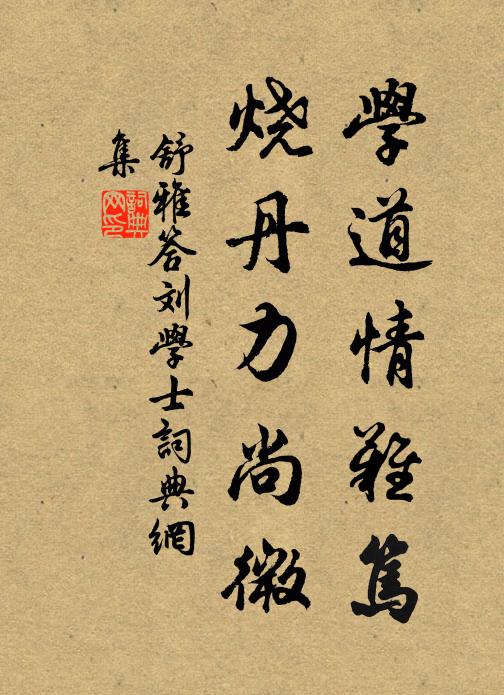 學道情難篤
烧丹力尚微
舒雅答刘學士詞典網
集
詞典
网印